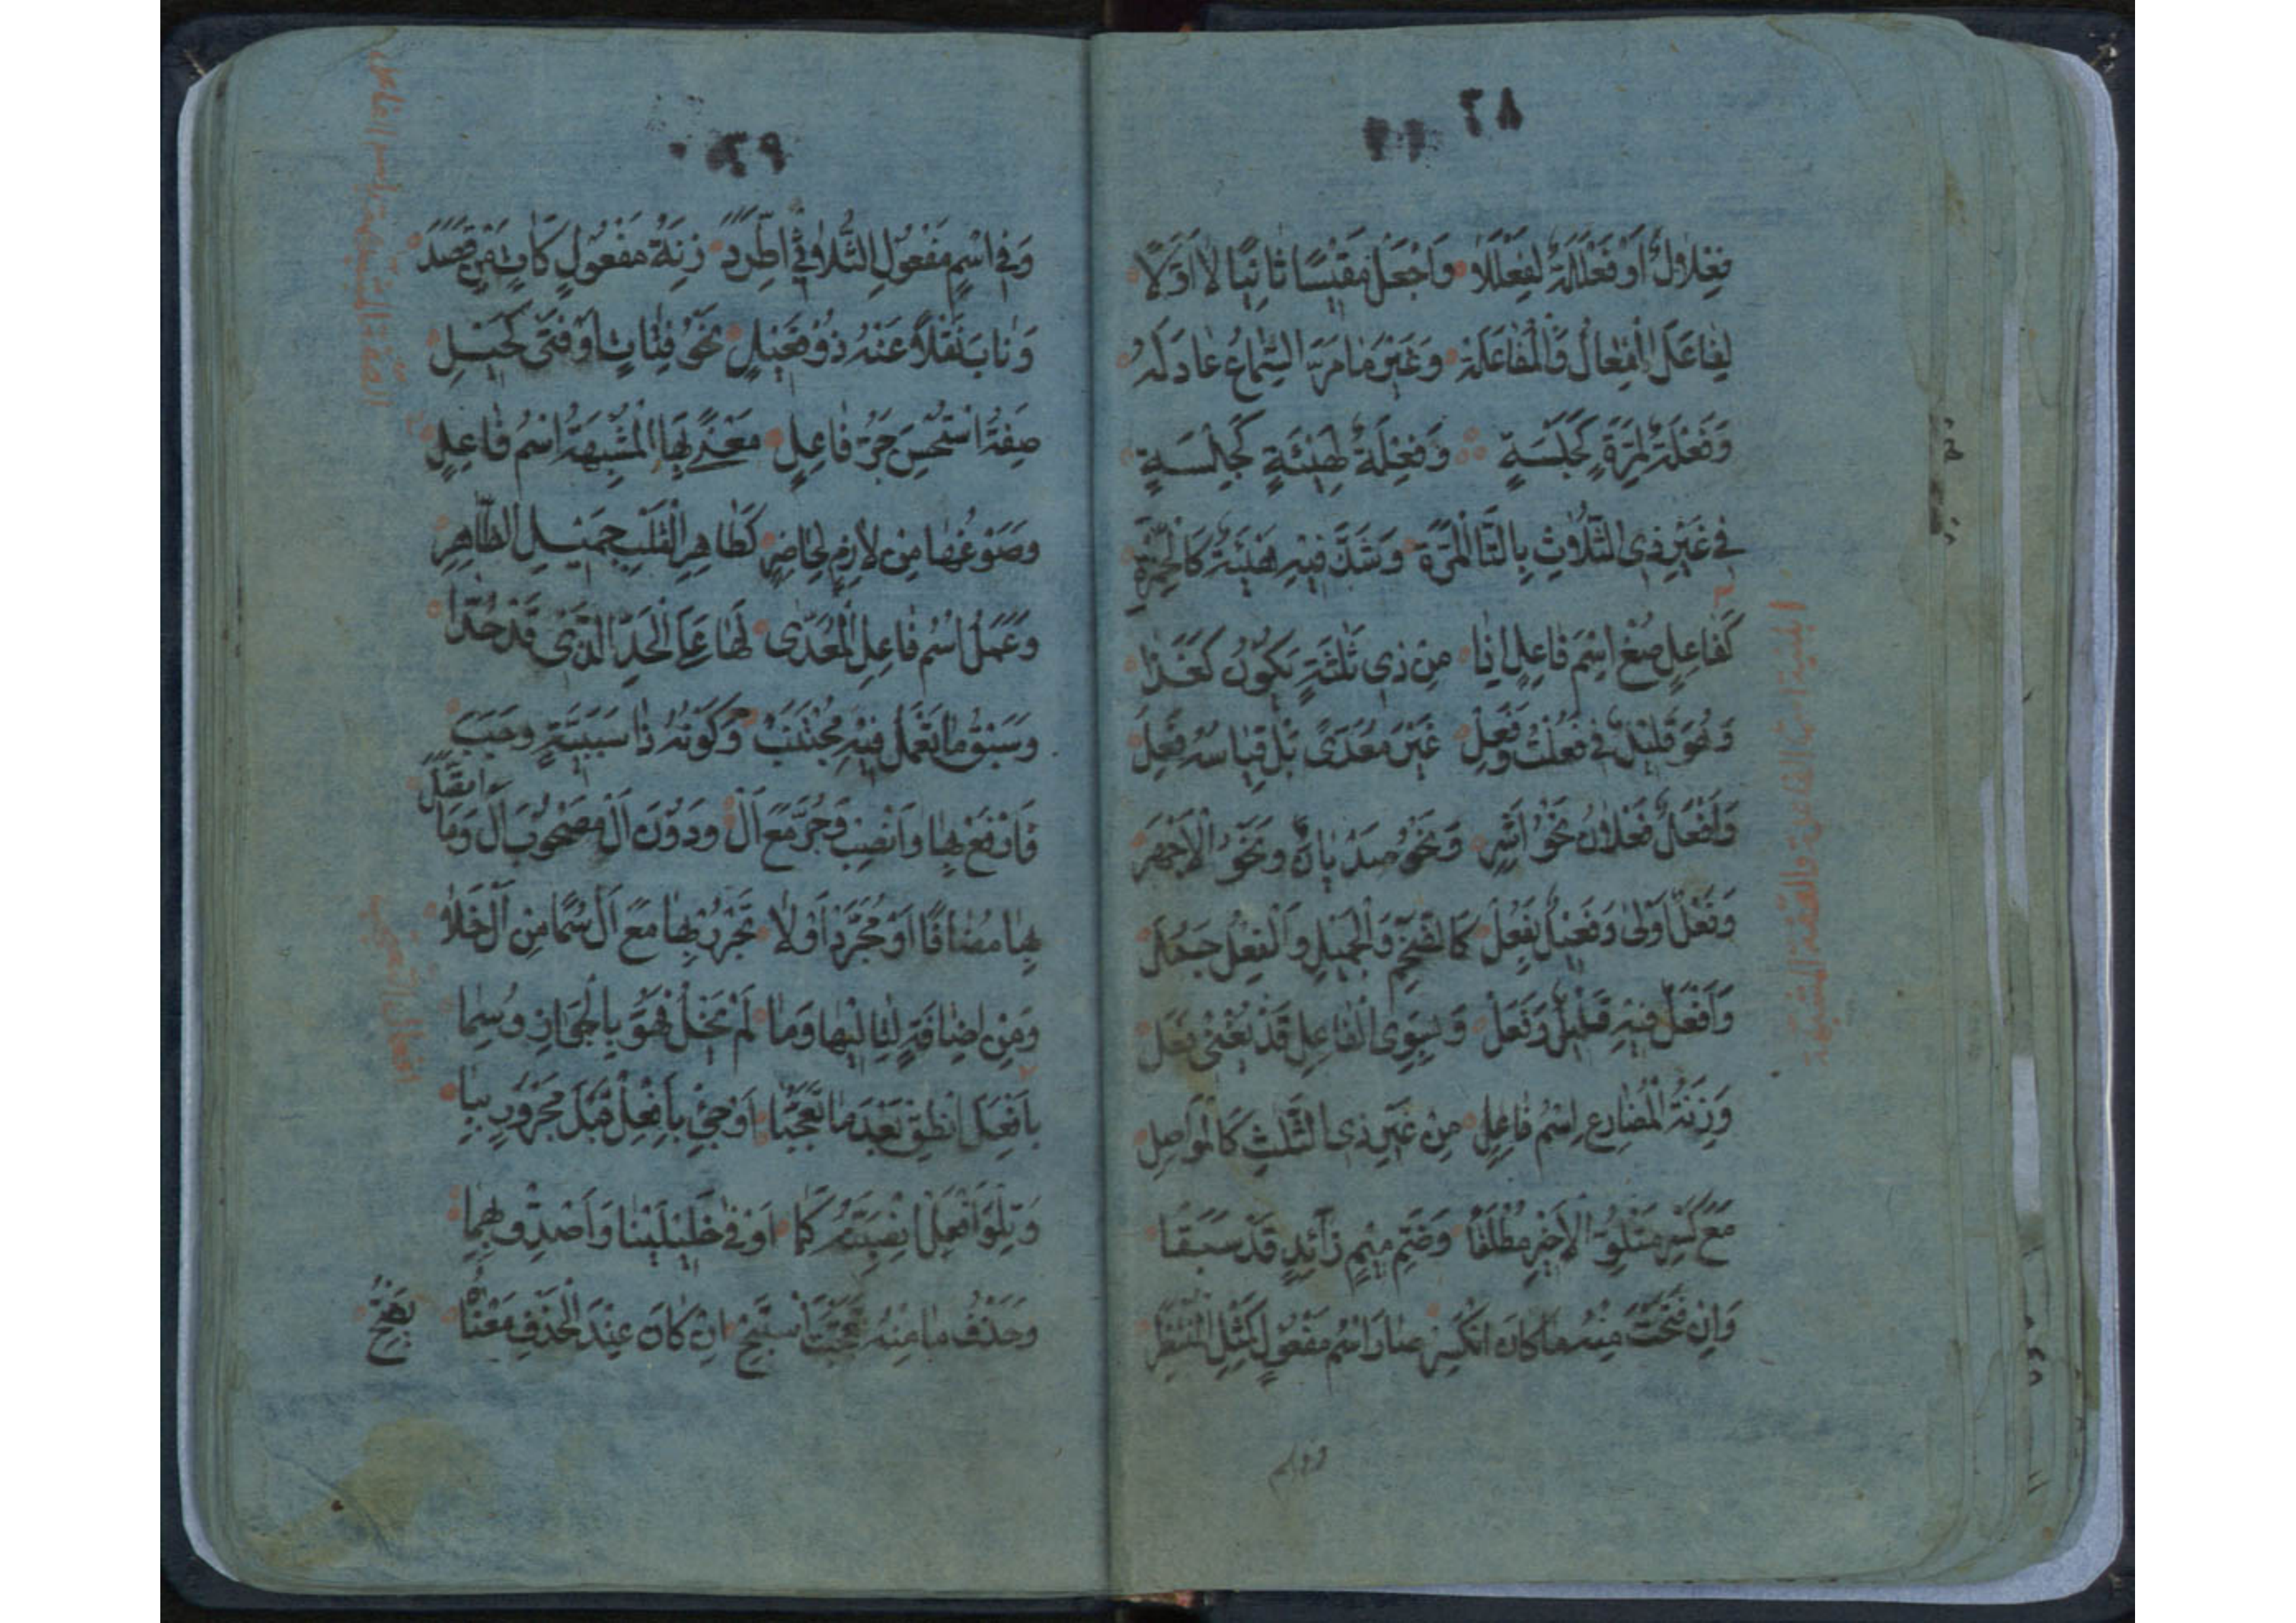 ٢٨
فِعْلَالٌ أَوْ فَعْلَلَةٌ لِفَعْلَلَا وَاجْعَلْ مَقِيْسًا ثَانِيًا لَا أَوَّلَا
لِفَاعَلَ الْفِعَالُ وَالْمُفَاعَلَهْ وَغَيْرُ مَا مَرَّ السَّمَاعُ عَادَلَهْ
وَفَعْلَةٌ لِمَرَّةٍ كَجَلْسَةٍ وَفِعْلَةٌ لِهَيْئَةٍ كَجِلْسَةٍ
فِي غَيْرِ ذِي الثَّلَاثِ بِالتَّا الْمَرَّةُ وَشَذَّ فِيْهِ هَيْئَةٌ كَالْخِمْرَةِ
ابنية اسماء الفاعلين والصفة المشبهة
كَفَاعِلٍ صُغْ اِسْمَ فَاعِلٍ اِذَا مِنْ ذِي ثَلٰثَةٍ يَكُوْنُ كَغَذَا
وَهُوَ قَلِيْلٌ فِي فَعُلْتُ وَفَعِلْ غَيْرَ مُعَدًّى بَلْ قِيَاسُهُ فَعِلْ
وَاَفْعَلٌ فَعْلَانُ نَحْوُ اَشِرِ وَنَحْوُ صَدْيَانَ وَنَحْوُ الْاَجْهَرِ
وَفَعْلٌ اَوْلٰى وَفَعِيْلٌ بِفَعُلْ كَالضَّخْمِ وَالْجَمِيْلِ وَالْفِعْلُ جَمُلْ
وَاَفْعَلٌ فِيْهِ قَلِيْلٌ وَفَعَلْ وَبِسِوَى الْفَاعِلِ قَدْ يَغْنٰى فَعَلْ
وَزِنَةُ الْمُضَارِعِ اِسْمُ فَاعِلِ مِنْ غَيْرِ ذِى الثَّلٰثِ كَالْمُوَاصِلِ
مَعْ كَسْرِ مَتْلُوِّ الْاَخِيْرِ مُطْلَقًا وَضَمِّ مِيْمٍ زَائِدٍ قَدْ سَبَقَا
وَاِنْ فَتَحْتَ مِنْهُ مَا كَانَ انْكَسَرْ صَارَ اسْمَ مَفْعُوْلٍ كَمِثْلِ الْمُنْتَظَرْ
وفى اسم
٣٩
وَفِي اسْمِ مَفْعُوْلِ الثُّلَاثِيِّ اطَّرَدَ زِنَةُ مَفْعُوْلٍ كَاٰتٍ مِنْ قَصَدَ
وَنَابَ نَقْلًا عَنْهُ ذُوْ فَعِيْلٍ نَحْوُ فَتَاتٍ اَوْ فَتًى كَحِيْلِ
الصفة المشبهة باسم الفاعل
صِفَةٌ اسْتُحْسِنَ جَرُّ فَاعِلٍ مَعْنًى بِهَا الْمُشْبِهَةُ اسْمَ فَاعِلٍ
وَصَوْغُهَا مِنْ لَازِمٍ لِحَاضِرٍ كَطَاهِرِ الْقَلْبِ جَمِيْلِ الظَّاهِرِ
وَعَمَلُ اسْمِ فَاعِلِ الْمُعَدّٰى لَهَا عَلَى الْحَدِّ الَّذِى قَدْ حُدَّا
وَسَبْقُ مَا تَعْمَلُ فِيْهِ مُجْتَنَبْ وَكَوْنُهُ ذَا سَبَبِيَّةٍ وَجَبَ
فَارْفَعْ بِهَا وَانْصِبْ وَجُرَّ مَعَ اَلْ وَدُوْنَ اَلْ مَصْحُوْبَ اَلْ وَمَا اتَّصَلَ
بِهَا مُضَافًا اَوْ مُجَرَّدًا وَلَا تَجْرُرْ بِهَا مَعَ اَلْ سُمًا مِنْ اَلْ خَلَا
وَمِنْ اِضَافَةٍ لِتَالِيْهَا وَمَا لَمْ يَخْلُ فَهُوَ بِالْجَوَازِ وُسِمَا
افعال التعجب
بِاَفْعَلَ انْطِقْ بَعْدَ مَا تَعَجُّبًا اَوْ جِئْ بِاَفْعِلْ قَبْلَ مَجْرُوْرٍ بِبَا
وَتِلْوَ اَفْعَلَ انْصِبَنَّهُ كَمَا اَوْفٰى خَلِيْلَيْنَا وَاَصْدِقْ بِهِمَا
وَحَذْفُ مَا مِنْهُ تَعَجَّبْتَ اسْتَبِحْ اِنْ كَانَ عِنْدَ الْحَذْفِ مَعْنَاهُ يَضِحْ